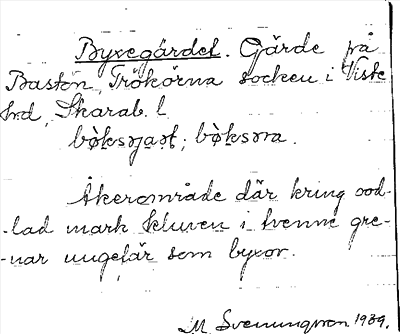 Byxegärdet. Gärde på
Bastön, Trökörna socken i Viste
hrd, Skarab. l.
Åkerområde där kring ood-
-lad mark kluven i tvenne gre-
-nar ungefär som byxor.
M Svenungson 1939.